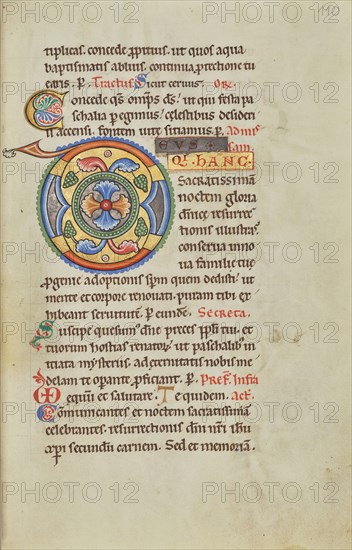 110
tiplicas. concede ꝓpitius. ut quos aqua
baptismatis abluis. continua ꝓtectione tu
earis. P. Tractus Sicut ceruus. Or̄.
Concede qs̄ omp̄s ds̄! ut qui festa pa
schalia pegimus! celestibus desideri
is accensi. fontem uite sitiamus. P.
EVS.
Qı HANC
Sacratissimā
noctem gloria
dn̄ice resurrec
tionis illustras.
conserua in no
ua familie tue
ꝓgenie adoptionis spm̄ quem dedisti! ut
mente et corpore renouati. puram tibi ex
hibeant seruitutē. P. eundē. Secreta.
Suscipe quesum̄ dn̄e preces ppl̄i tui. et
tuorum hostias renatoꝝ. ut paschalibus in
itiata mysteriis. ad eternitatis nobis me
delam te opante. ꝓficiant. P. Pref. Infra
equum et salutare. Te quidem. act.
Communicantes et noctem sacratissimā
celebrantes. resurrectionis dn̄i nr̄i ihu
xp̄i secundū carnem. Sed et memoriā.